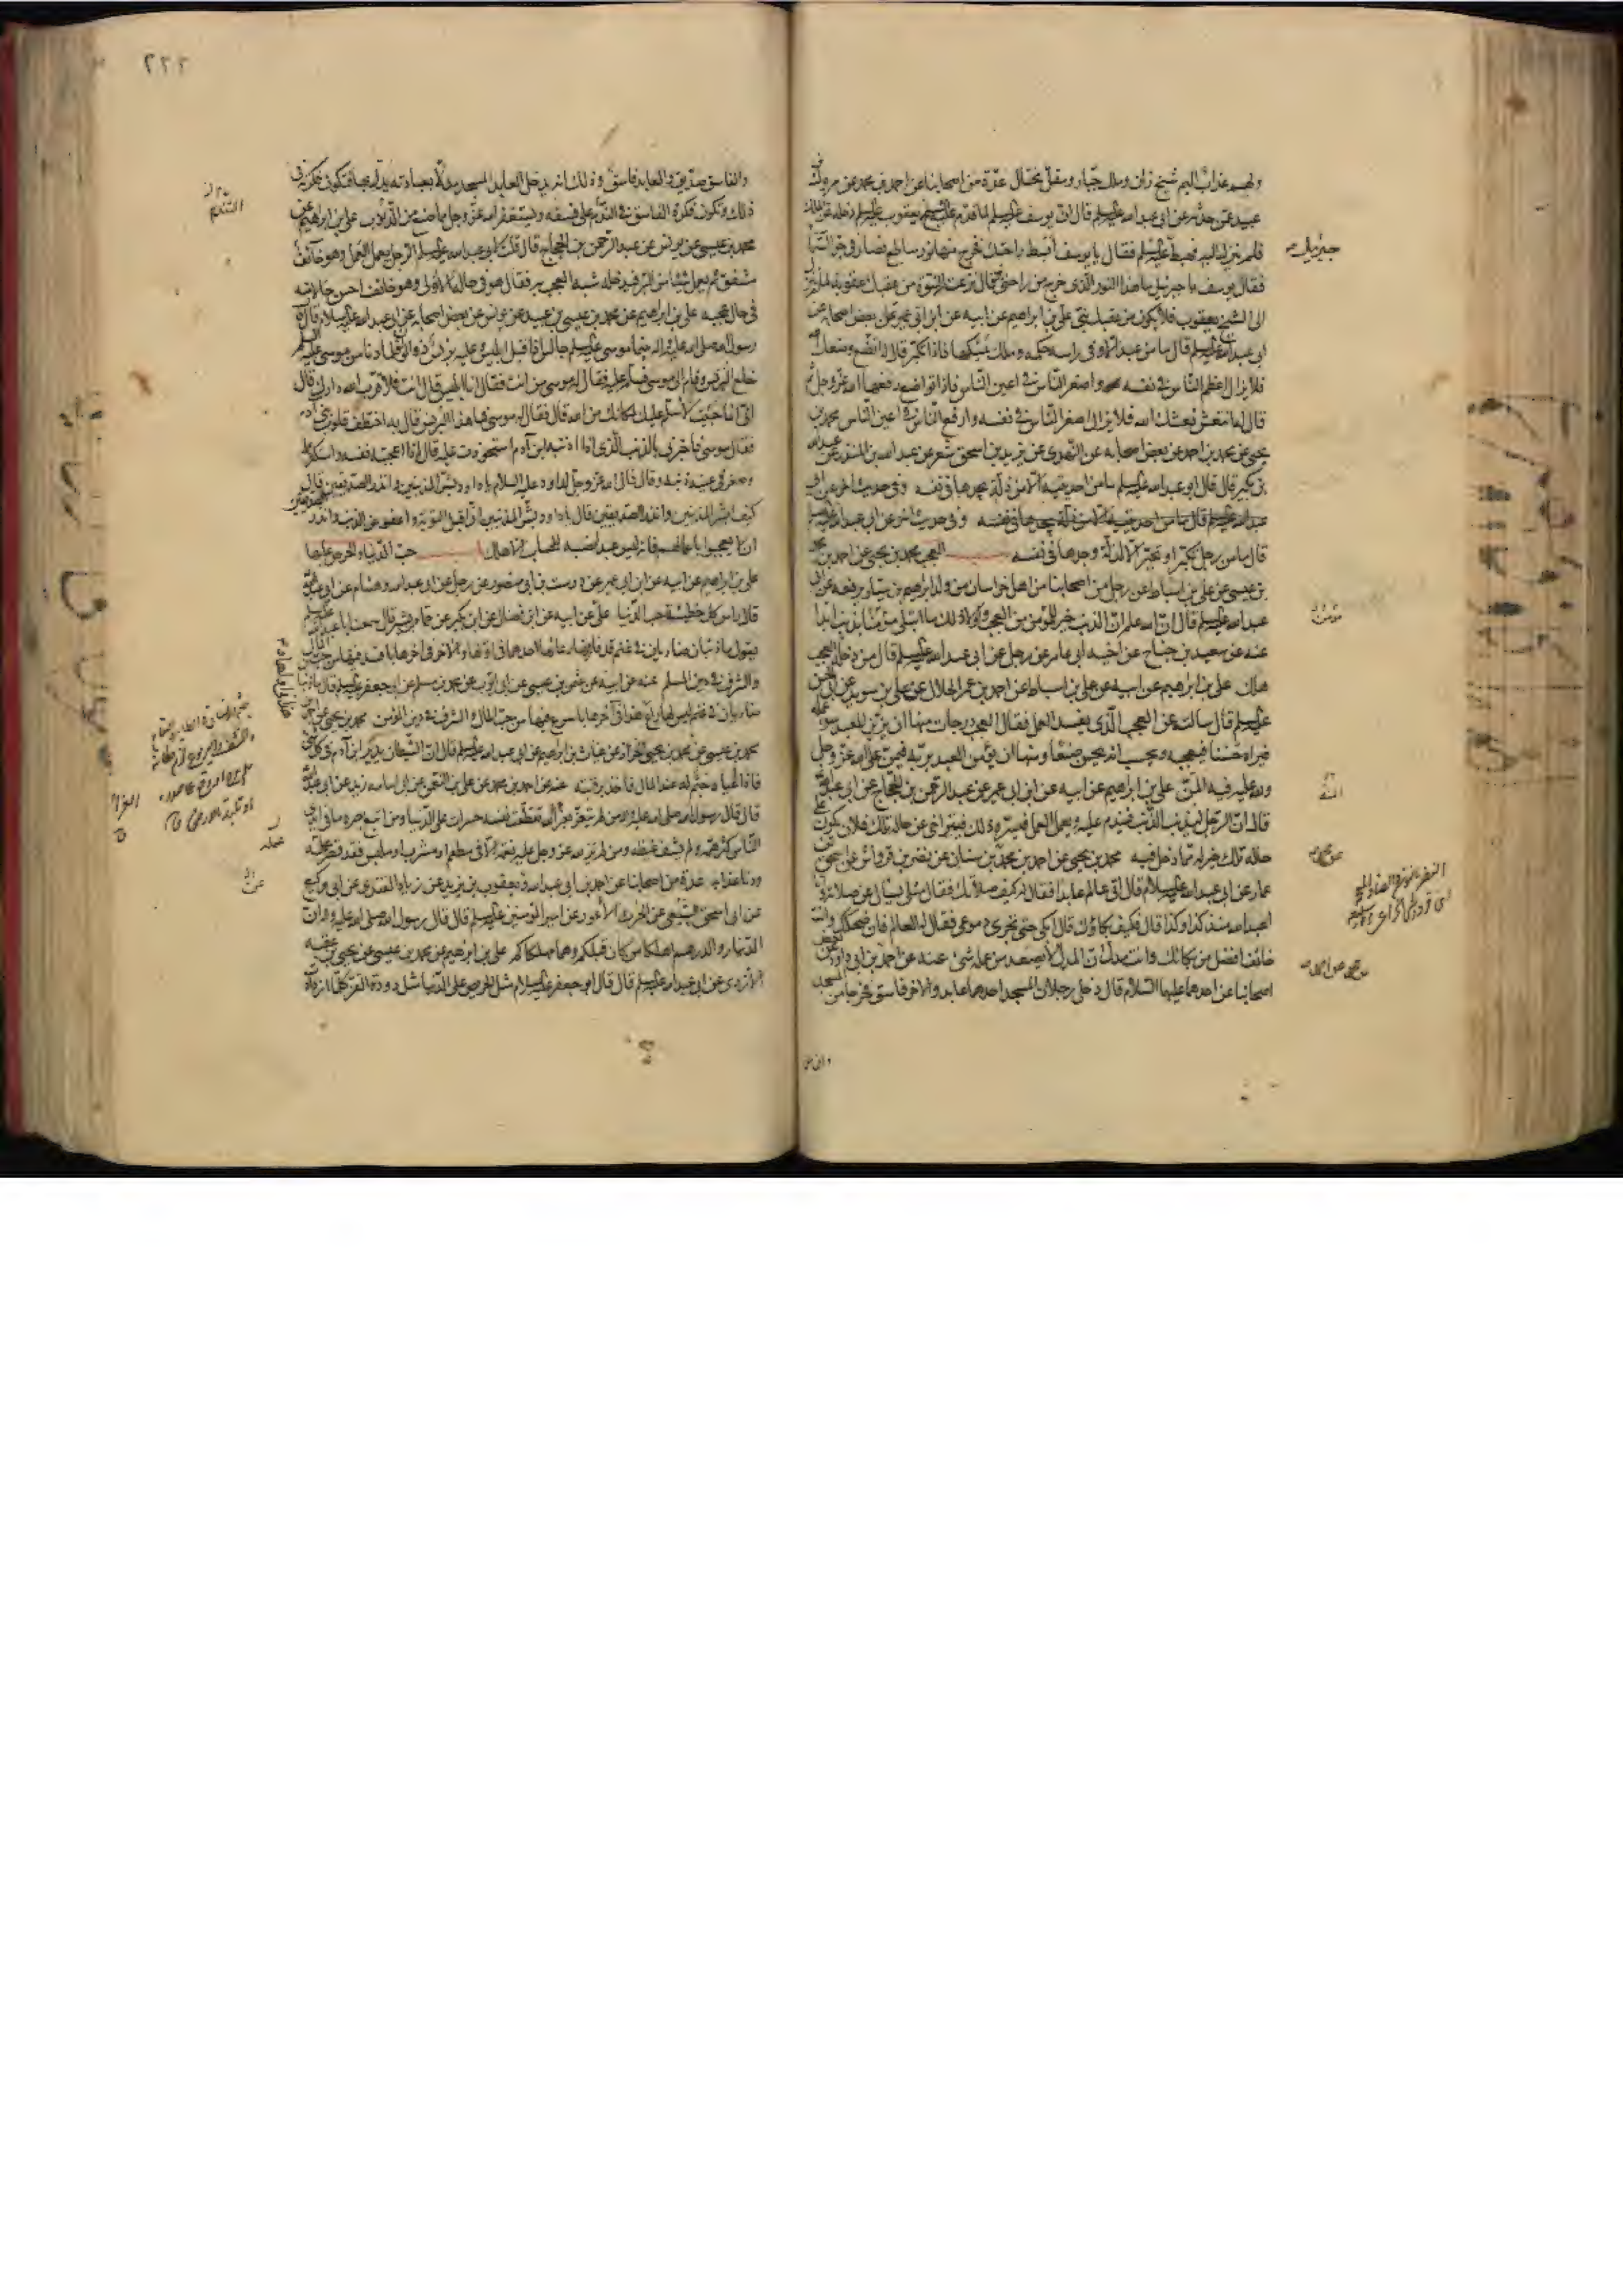 ولهم عذاب اليم شيخ زان وملك جبار ومقل مختال عدة من اصحابنا عن احمد بن محمد عن مروك بن
عبيد عمن حدثه عن ابى عبد الله عليه السلم قال ان يوسف عليه السلم لما قدم عليه الشيخ يعقوب عليه السلم دخله عز الملك
فلم ينزل اليه فهبط عليه السلم فقال يا يوسف ابسط راحتك فخرج منها نور ساطع فصار في جو السماء
جبرئيل
فقال يوسف يا جبرئيل ما هذا النور الذى خرج من راحتى فقال نزعت النبوة من عقبك عقوبة لما لم تنزل
الى الشيخ يعقوب فلا يكون من عقبك نبى على بن ابراهيم عن ابيه عن ابن ابى عمير عن بعض اصحابه عن
ابى عبد الله عليه السلم قال ما من عبد الا وفى راسه حكمة وملك يمسكها فاذا تكبر قال له اتضع وضعك الله
فلا يزال اعظم الناس فى نفسه واصغر الناس فى اعين الناس فاذا تواضع رفعها الله عز وجل ثم
قال له انتعش نعشك الله فلا يزال اصغر الناس فى نفسه وارفع الناس فى اعين الناس محمد بن
يحيى عن محمد بن احمد عن بعض اصحابه عن النهدى عن يزيد بن اسحق شعر عن عبد الله بن المنذر عن عبد الله
بن بكير قال قال ابو عبد الله عليه السلم ما من احد يتيه الا من ذلة يجدها فى نفسه وفى حديث اخر عن ابى
عبد الله عليه السلم
قال ما من رجل تكبر او تجبر الا لذلة وجدها فى نفسه العجب محمد بن يحيى عن احمد بن محمد
بن عيسى عن على بن اسباط عن رجل من اصحابنا من اهل خراسان من ولد ابراهيم بن سيار يرفعه عن ابى
عبد الله عليه السلم قال ان الله علم ان الذنب خير للمؤمن من العجب ولولا ذلك ما ابتلى مؤمنا بذنب ابدا
عنه عن سعيد بن جناح عن اخيه ابى عامر عن رجل عن ابى عبد الله عليه السلم قال من دخله العجب
هلك على بن ابراهيم عن ابيه عن على بن اسباط عن احمد بن عمر الحلال عن على بن سويد عن ابى الحسن
عليه السلم قال سالته عن العجب الذى يفسد العمل فقال العجب درجات منها ان يزين للعبد سوء عمله
فيراه حسنا فيعجبه ويحسب انه يحسن صنعا ومنها ان يؤمن العبد بربه فيمن على الله عز وجل
ولله عليه فيه المن على بن ابراهيم عن ابيه عن ابن ابى عمير عن عبد الرحمن بن الحجاج عن ابى عبد الله
قال ان الرجل ليذنب الذنب فيندم عليه ويعمل العمل فيسره ذلك فيتراخى عن حاله تلك فلان يكون على
حاله تلك خير له مما دخل فيه محمد بن يحيى عن احمد بن محمد عن محمد بن سنان عن نضر بن قرواش عن اسحق بن
عمار عن ابى عبد الله عليه السلام قال اتى عالم عابدا فقال له كيف صلاتك فقال مثلى يسال عن صلاته وانا
اعبد الله منذ كذا وكذا قال فكيف بكاؤك قال ابكى حتى تجرى دموعى فقال له العالم فان ضحكك وانت
خائف افضل من بكائك وانت مدل ان المدل لا يصعد من عمله شىء عنه عن احمد بن ابى داود عن بعض
اصحابنا عن احدهما عليهما السلام قال دخل رجلان المسجد احدهما عابد والاخر فاسق فخرجا من المسجد
٢٢٢
والفاسق صديق والعابد فاسق وذلك انه يدخل العابد المسجد مدلا بعبادته يدل بها فتكون فكرته فى
ذلك وتكون فكرة الفاسق فى التندم على فسقه ويستغفر الله عز وجل مما صنع من الذنوب على بن ابراهيم عن
التندم
محمد بن عيسى عن يونس عن عبد الرحمن بن الحجاج قال قلت لابى عبد الله عليه السلم الرجل يعمل العمل وهو خائف
مشفق ثم يعمل شيئا من البر فيدخله شبه العجب به فقال هو فى حاله الاولى وهو خائف احسن حالا منه
فى حال عجبه على بن ابراهيم عن محمد بن عيسى بن عبيد عن يونس عن بعض اصحابه عن ابى عبد الله عليه السلام قال قال
رسول الله صلى الله عليه واله بينما موسى عليه السلم جالسا اذ اقبل ابليس وعليه برنس ذو الوان فلما دنا من موسى عليه السلم
خلع البرنس وقام الى موسى فسلم عليه فقال له موسى من انت فقال انا ابليس قال انت فلا قرب الله دارك قال
انى انما جئت لاسلم عليك لمكانك من الله قال فقال له موسى فما هذا البرنس قال به اختطف قلوب بنى ادم
فقال موسى فاخبرنى بالذنب الذى اذا اذنبه ابن آدم استحوذت عليه قال اذا اعجبته نفسه واستكثر عمله
وصغر فى عينه ذنبه وقال قال الله عز وجل لداود عليه السلام يا داود بشر المذنبين وانذر الصديقين قال
كيف ابشر المذنبين وانذر الصديقين قال يا داود بشر المذنبين انى اقبل التوبة واعفو عن الذنب وانذر الصديقين
ان لا يعجبوا باعمالهم فانه ليس عبد انصبه للحساب الا هلك حب الدنيا والحرص عليها
على بن ابراهيم عن ابيه عن ابن ابى عمير عن درست بن ابى منصور عن رجل عن ابى عبد الله وهشام عن ابى عبد الله
قال راس كل خطيئة حب الدنيا على عن ابيه عن ابن فضال عن ابن بكير عن حماد بن بشير قال سمعت ابا عبد الله عليه السلم
يقول ما ذئبان ضاريان فى غنم قد فارقها رعاؤها احدهما فى اولها والاخر فى اخرها بافسد فيها من حب المال
والشرف فى دين المسلم عنه عن ابيه عن عثمن بن عيسى عن ابى ايوب عن محمد بن مسلم عن ابى جعفر عليه السلم قال ما ذئبان
ضاريان فى غنم ليس لها راع هذا فى اولها وهذا فى اخرها باسرع فيها من حب المال والشرف فى دين المؤمن محمد بن يحيى عن احمد بن
محمد بن عيسى عن محمد بن يحيى الخزاز عن غياث بن ابراهيم عن ابى عبد الله عليه السلم قال ان الشيطان يدير ابن آدم فى كل شىء
فاذا اعياه جثم له عند المال فاخذ برقبته عنه عن احمد بن محمد عن على بن النعمان عن ابى اسامه زيد عن ابى عبد الله
قال قال رسول الله صلى الله عليه واله من لم يتعز بعزاء الله تقطعت نفسه حسرات على الدنيا ومن اتبع بصره ما فى ايدى
الناس كثر همه ولم يشف غيظه ومن لم ير لله عز وجل عليه نعمة الا فى مطعم او مشرب او ملبس فقد قصر عمله
ودنا عذابه عدة من اصحابنا عن احمد بن ابى عبد الله عن يعقوب بن يزيد عن زياد القندى عن ابى وكيع
عن ابى اسحق السبيعى عن الحرث الاعور عن امير المؤمنين عليه السلم قال قال رسول الله صلى الله عليه واله ان
الدينار والدرهم اهلكا من كان قبلكم وهما مهلكاكم على بن ابراهيم عن محمد بن عيسى عن يحيى بن عقبه
الازدى عن ابى عبد الله عليه السلم قال قال ابو جعفر عليه السلام مثل الحريص على الدنيا مثل دودة القز كلما ازدادت